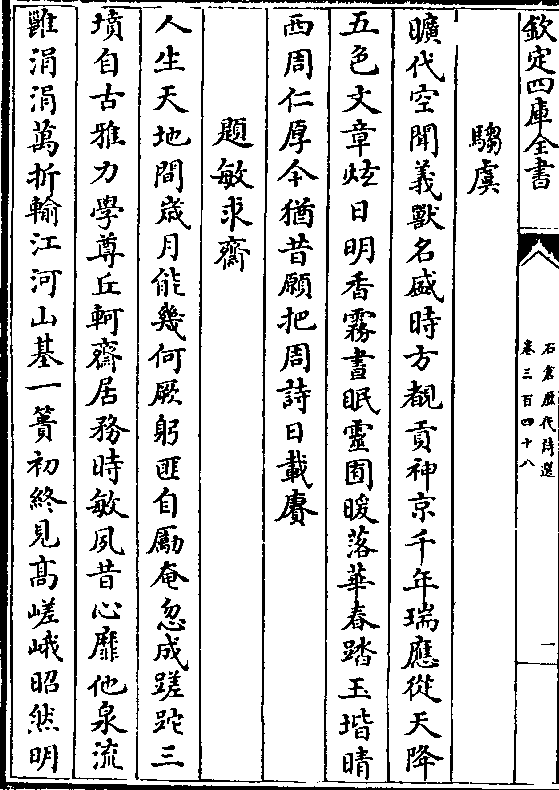 欽定四庫全書
石倉歷代詩選
卷三百四十八
一
騶虞
曠代空聞義獸名盛時方覩貢神京千年瑞應從天降
五色文章炫日明香霧晝眠靈囿暖落華春踏玉堦晴
西周仁厚今猶昔願把周詩日載賡
題敏求齋
人生天地間歲月能幾何厥躬匪自勵奄忽成蹉跎三
墳自古雅力學尊丘軻齋居務時敏夙昔心靡他泉流
雖涓涓萬折輸江河山基一簣初終見髙嵯峨昭然明